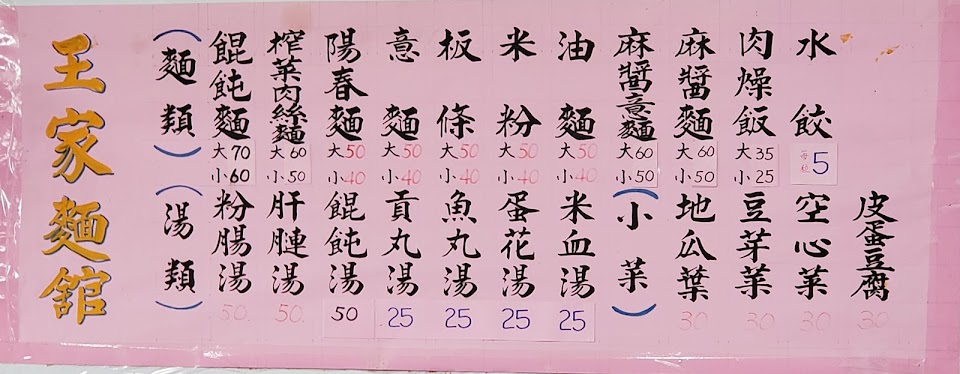 王家麵舘
（麵類）
餛飩麵 大70 小60
榨菜肉絲麵 大60 小50
陽春麵 大50 小40
意麵 大50 小40
板條 大50 小40
米粉 大50 小40
油麵 大50 小40
麻醬意麵 大60 小50
麻醬麵 大60 小50
肉燥飯 大35 小25
水餃 每粒5
（湯類）
粉腸湯 50
肝腱湯 50
餛飩湯 50
貢丸湯 25
魚丸湯 25
蛋花湯 25
米血湯 25
（小菜）
地瓜葉 30
豆芽菜 30
空心菜 30
皮蛋豆腐 30